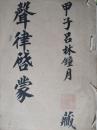 甲子呂林鐘月
聲律啓蒙
藏